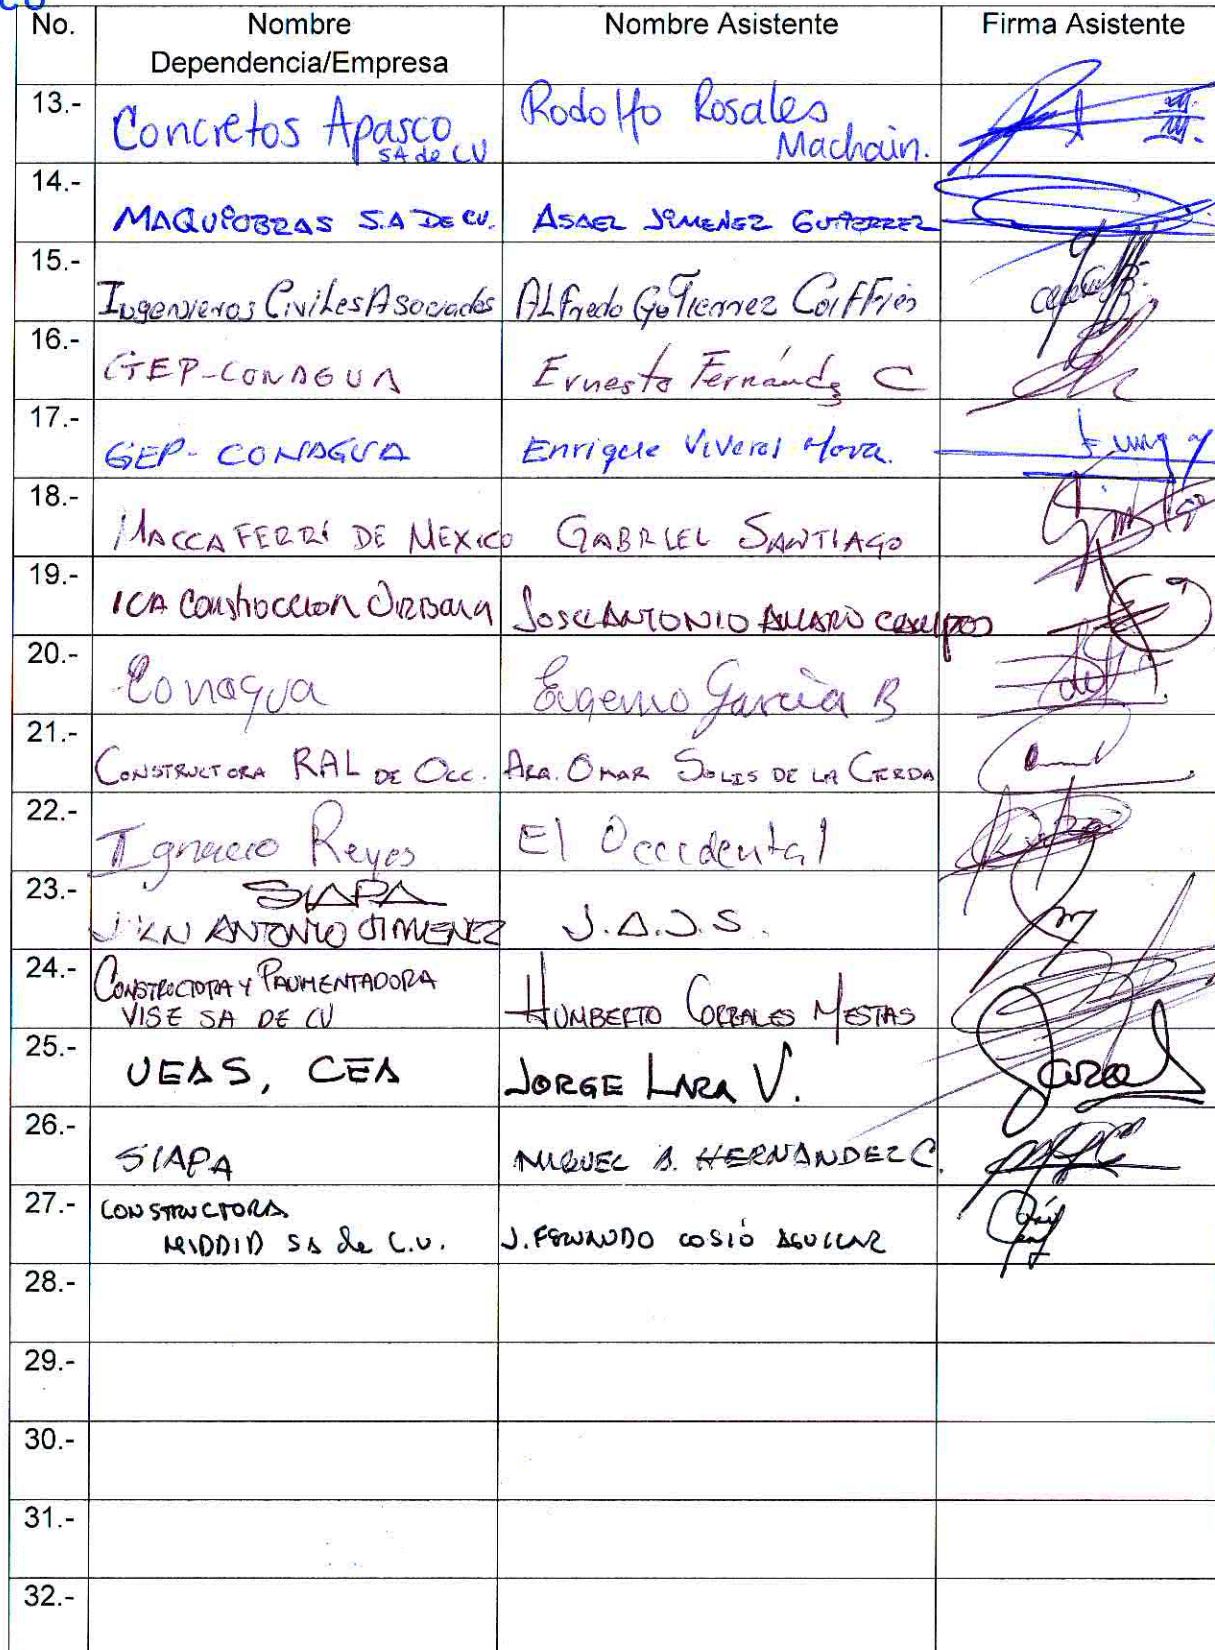 No. Nombre Dependencia/Empresa Nombre Asistente Firma Asistente
13.- Concretos Apasco SA de CV Rodolfo Rosales Machain.
14.- MAQUIOBRAS S.A DE CV. ASAEL JIMENEZ GUTIERREZ
15.- Ingenieros Civiles Asociados ALfredo Gutierrez
16.- GEP-CONAGUA Ernesto Fernández C
17.- GEP-CONAGUA Enrique Viveros Mora.
18.- MACCAFERRI DE MEXICO GABRIEL SANTIAGO
19.- ICA Construccion Urbana JOSE ANTONIO CAMPOS
20.- Conagua Eugenio García B
21.- CONSTRUCTORA RAL DE OCC. ARQ. OMAR SOLIS DE LA CERDA
22.- Ignacio Reyes El Occidental
23.- SIAPA
JUAN ANTONIO JIMENEZ J.A.J.S.
24.- CONSTRUCTORA Y PAVIMENTADORA
VISE SA DE CV HUMBERTO CORRALES MESTAS
25.- UEAS, CEA JORGE LARA V.
26.- SIAPA MIGUEL A. HERNANDEZ C.
27.- CONSTRUCTORA
MIDDID SA de C.V. J. FERNANDO COSIÓ AGUILAR
28.-
29.-
30.-
31.-
32.-